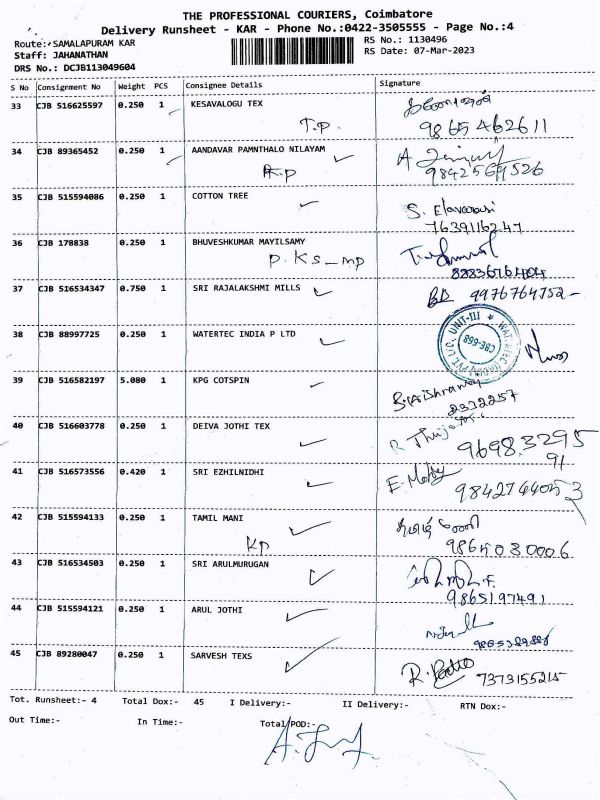 THE PROFESSIONAL COURIERS, Coimbatore
Delivery Runsheet - KAR - Phone No.:0422-3505555 - Page No.:4
Route: SAMALAPURAM KAR
RS No.: 1130496
Staff: JAHANATHAN
RS Date: 07-Mar-2023
DRS No.: DCJB113049604
S No Consignment No Weight PCS Consignee Details Signature
33 CJB 516625597 0.250 1 KESAVALOGU TEX
T.p. 9865462611
34 CJB 89365452 0.250 1 AANDAVAR PAMNTHALO NILAYAM
A.p
35 CJB 515594086 0.250 1 COTTON TREE
S. Elavarasi
7639116247
36 CJB 178838 0.250 1 BHUVESHKUMAR MAYILSAMY
P.KS_mp
37 CJB 516534347 0.750 1 SRI RAJALAKSHMI MILLS
9976764752
38 CJB 88997725 0.250 1 WATERTEC INDIA P LTD
UNIT-III
39 CJB 516582197 5.080 1 KPG COTSPIN
2332257
40 CJB 516603778 0.250 1 DEIVA JOTHI TEX
96983295
91
41 CJB 516573556 0.420 1 SRI EZHILNIDHI
9842744053
42 CJB 515594133 0.250 1 TAMIL MANI
KP
43 CJB 516534503 0.250 1 SRI ARULMURUGAN
9865197491
44 CJB 515594121 0.250 1 ARUL JOTHI
45 CJB 89280047 0.250 1 SARVESH TEXS
7373155215
Tot. Runsheet:- 4 Total Dox:- 45 I Delivery:- II Delivery:- RTN Dox:-
Out Time:- In Time:- Total POD:-